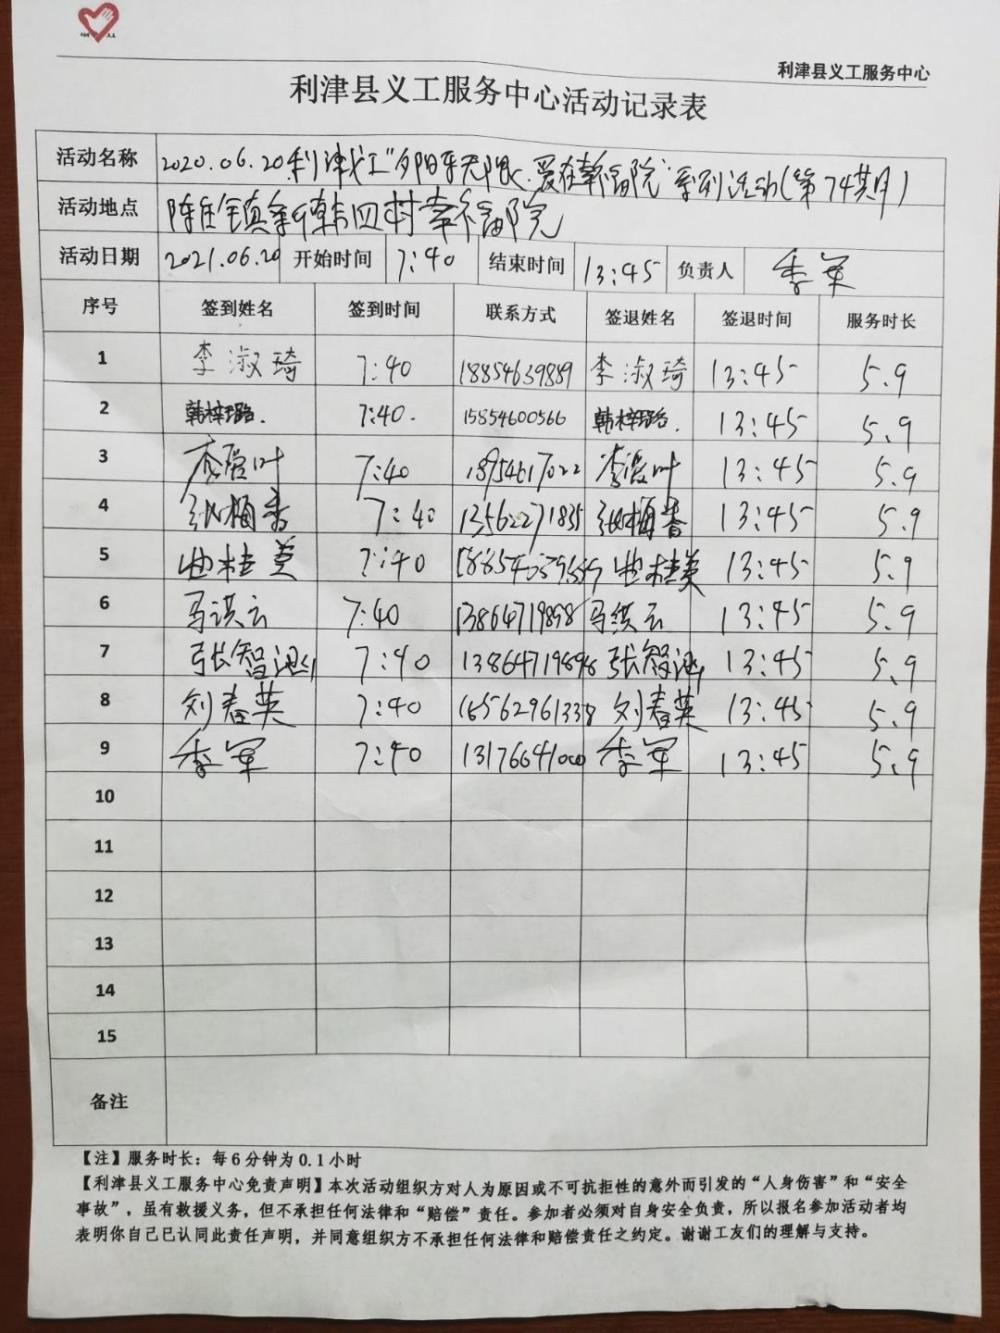 利津县义工服务中心
利津县义工服务中心活动记录表
活动名称 2020.06.20利津义工“夕阳乐无限,爱在幸福院”系列活动(第74期)
活动地点 陈庄镇新韩四村幸福院
活动日期 2021.06.20 开始时间 7:40 结束时间 13:45 负责人 李军
序号 签到姓名 签到时间 联系方式 签退姓名 签退时间 服务时长
1 李淑琦 7:40 18854639889 李淑琦 13:45 5.9
2 韩梓璐 7:40. 15854600566 韩梓璐. 13:45 5.9
3 7:40 18954617022 13:45 5.9
4 张梅香 7:40 13562271835 张梅香 13:45 5.9
5 曲桂英 7:40 曲桂英 13:45 5.9
6 马洪云 7:40 13864719898 马洪云 13:45 5.9
7 张智涵 7:40 13864719898 张智涵 13:45 5.9
8 刘春英 7:40 16562961338 刘春英 13:45 5.9
9 李军 7:40 13176641000 李军 13:45 5.9
10
11
12
13
14
15
备注
【注】服务时长：每6分钟为0.1小时
【利津县义工服务中心免责声明】本次活动组织方对人为原因或不可抗拒性的意外而引发的“人身伤害”和“安全
事故”，虽有救援义务，但不承担任何法律和“赔偿”责任。参加者必须对自身安全负责，所以报名参加活动者均
表明你自己已认同此责任声明，并同意组织方不承担任何法律和赔偿责任之约定。谢谢工友们的理解与支持。